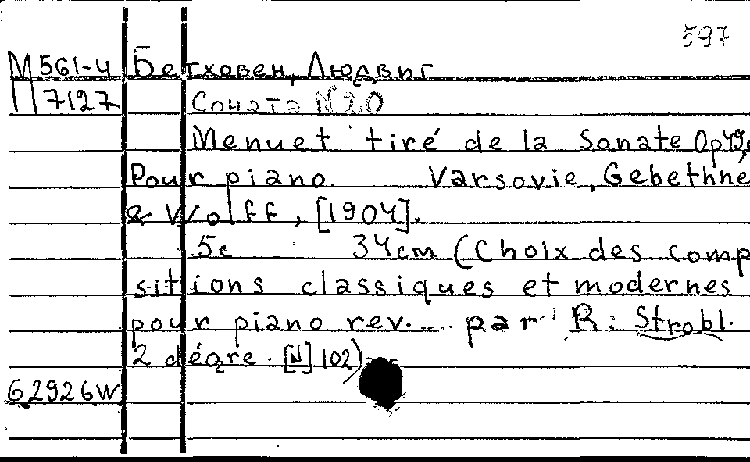 597
М 561-4 Бетховен, Людвиг
П 7127 Соната N20
Menuet tiré de la Sonate Op 49,
Pour piano. Varsovie, Gebethne
& Wolff, [1904].
5c 34cm (Choix des comp
sitions classiques et modernes
pour piano rev... par R: Strobl.
2 dégre. [N] 102)
G 2926 W